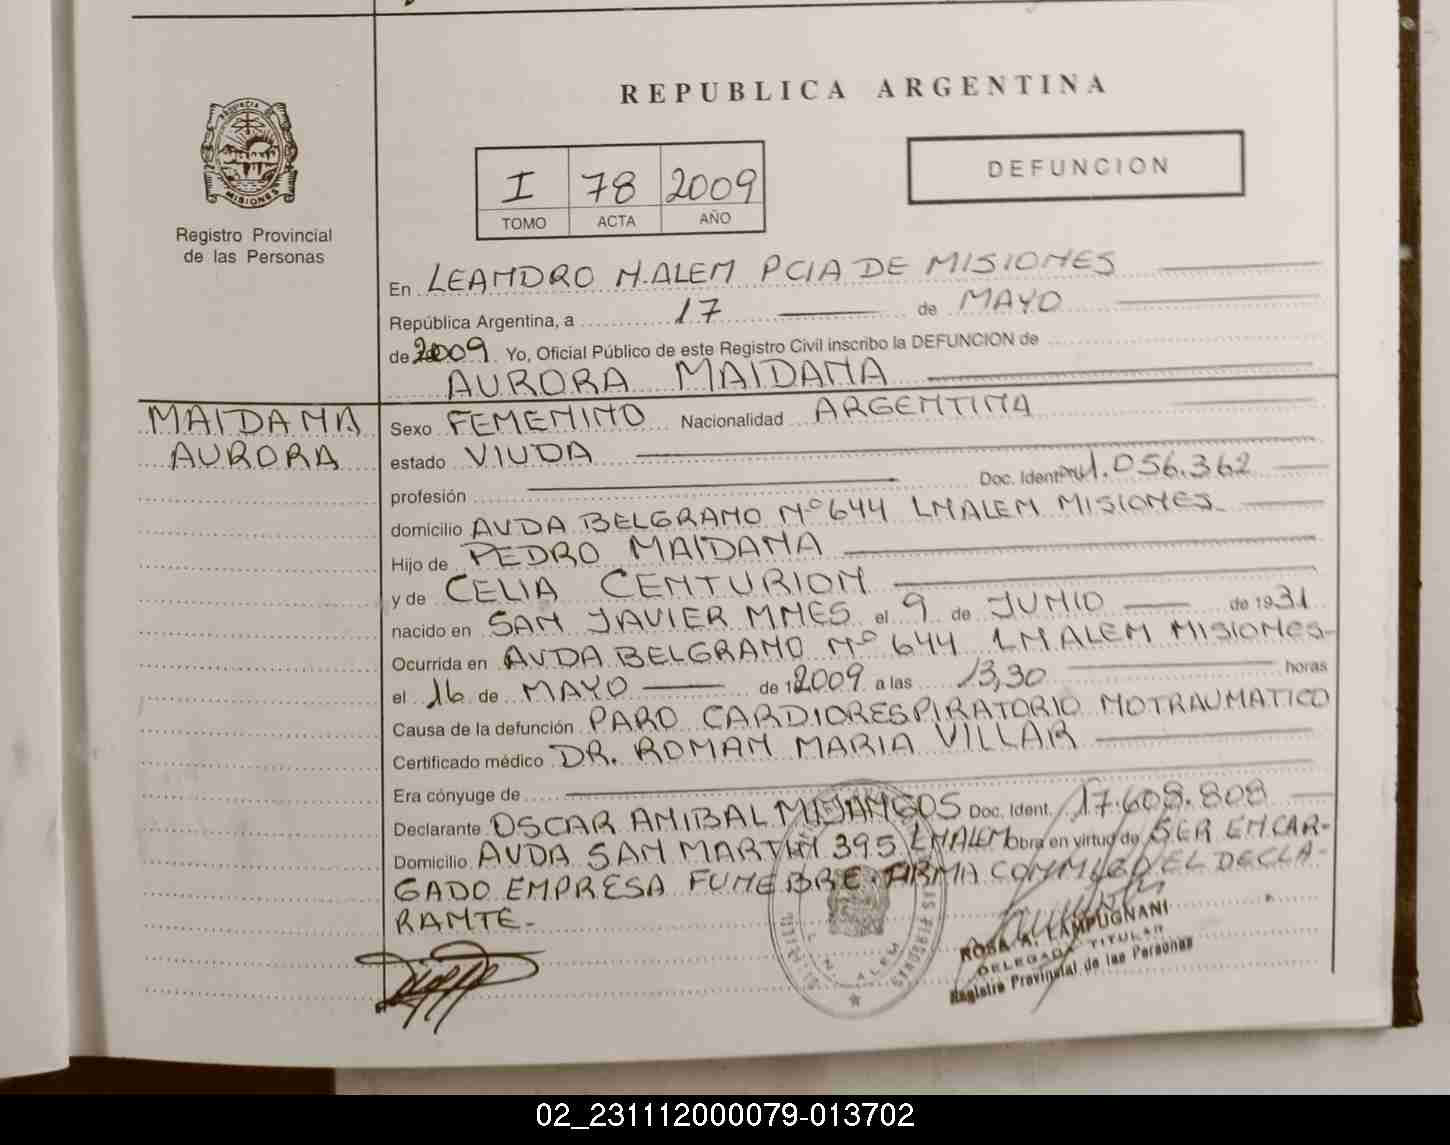 REPUBLICA ARGENTINA
PROVINCIA DE
MISIONES
Registro Provincial
de las Personas
I 78 2009
TOMO ACTA AÑO
DEFUNCION
En LEANDRO N. ALEM PCIA DE MISIONES
República Argentina, a 17 de MAYO
de 2009. Yo, Oficial Público de este Registro Civil inscribo la DEFUNCION de
AURORA MAIDANA
MAIDANA
AURORA
Sexo FEMENINO Nacionalidad ARGENTINA
estado VIUDA
profesión Doc. Ident. 1.056.362
domicilio AVDA BELGRANO Nº 644 LNALEM MISIONES
Hijo de PEDRO MAIDANA
y de CELIA CENTURION
nacido en SAN JAVIER MNES el 9 de JUNIO de 1931
Ocurrida en AVDA BELGRANO Nº 644 LNALEM MISIONES-
el 16 de MAYO de 2009 a las 13,30 horas
Causa de la defunción PARO CARDIORESPIRATORIO NOTRAUMATICO
Certificado médico DR. ROMAN MARIA VILLAR
Era cónyuge de
Declarante OSCAR ANIBAL MIJANGOS Doc. Ident. 17.608.808
Domicilio AVDA SAN MARTIN 395 LNALEM Obra en virtud de SER ENCAR-
GADO EMPRESA FUNEBRE. FIRMA CONMIGO EL DECLA-
RANTE-
L. N. ALEM
ROSA A. LAMPUGNANI
DELEGADA TITULAR
Registro Provincial de las Personas
02_231112000079-013702